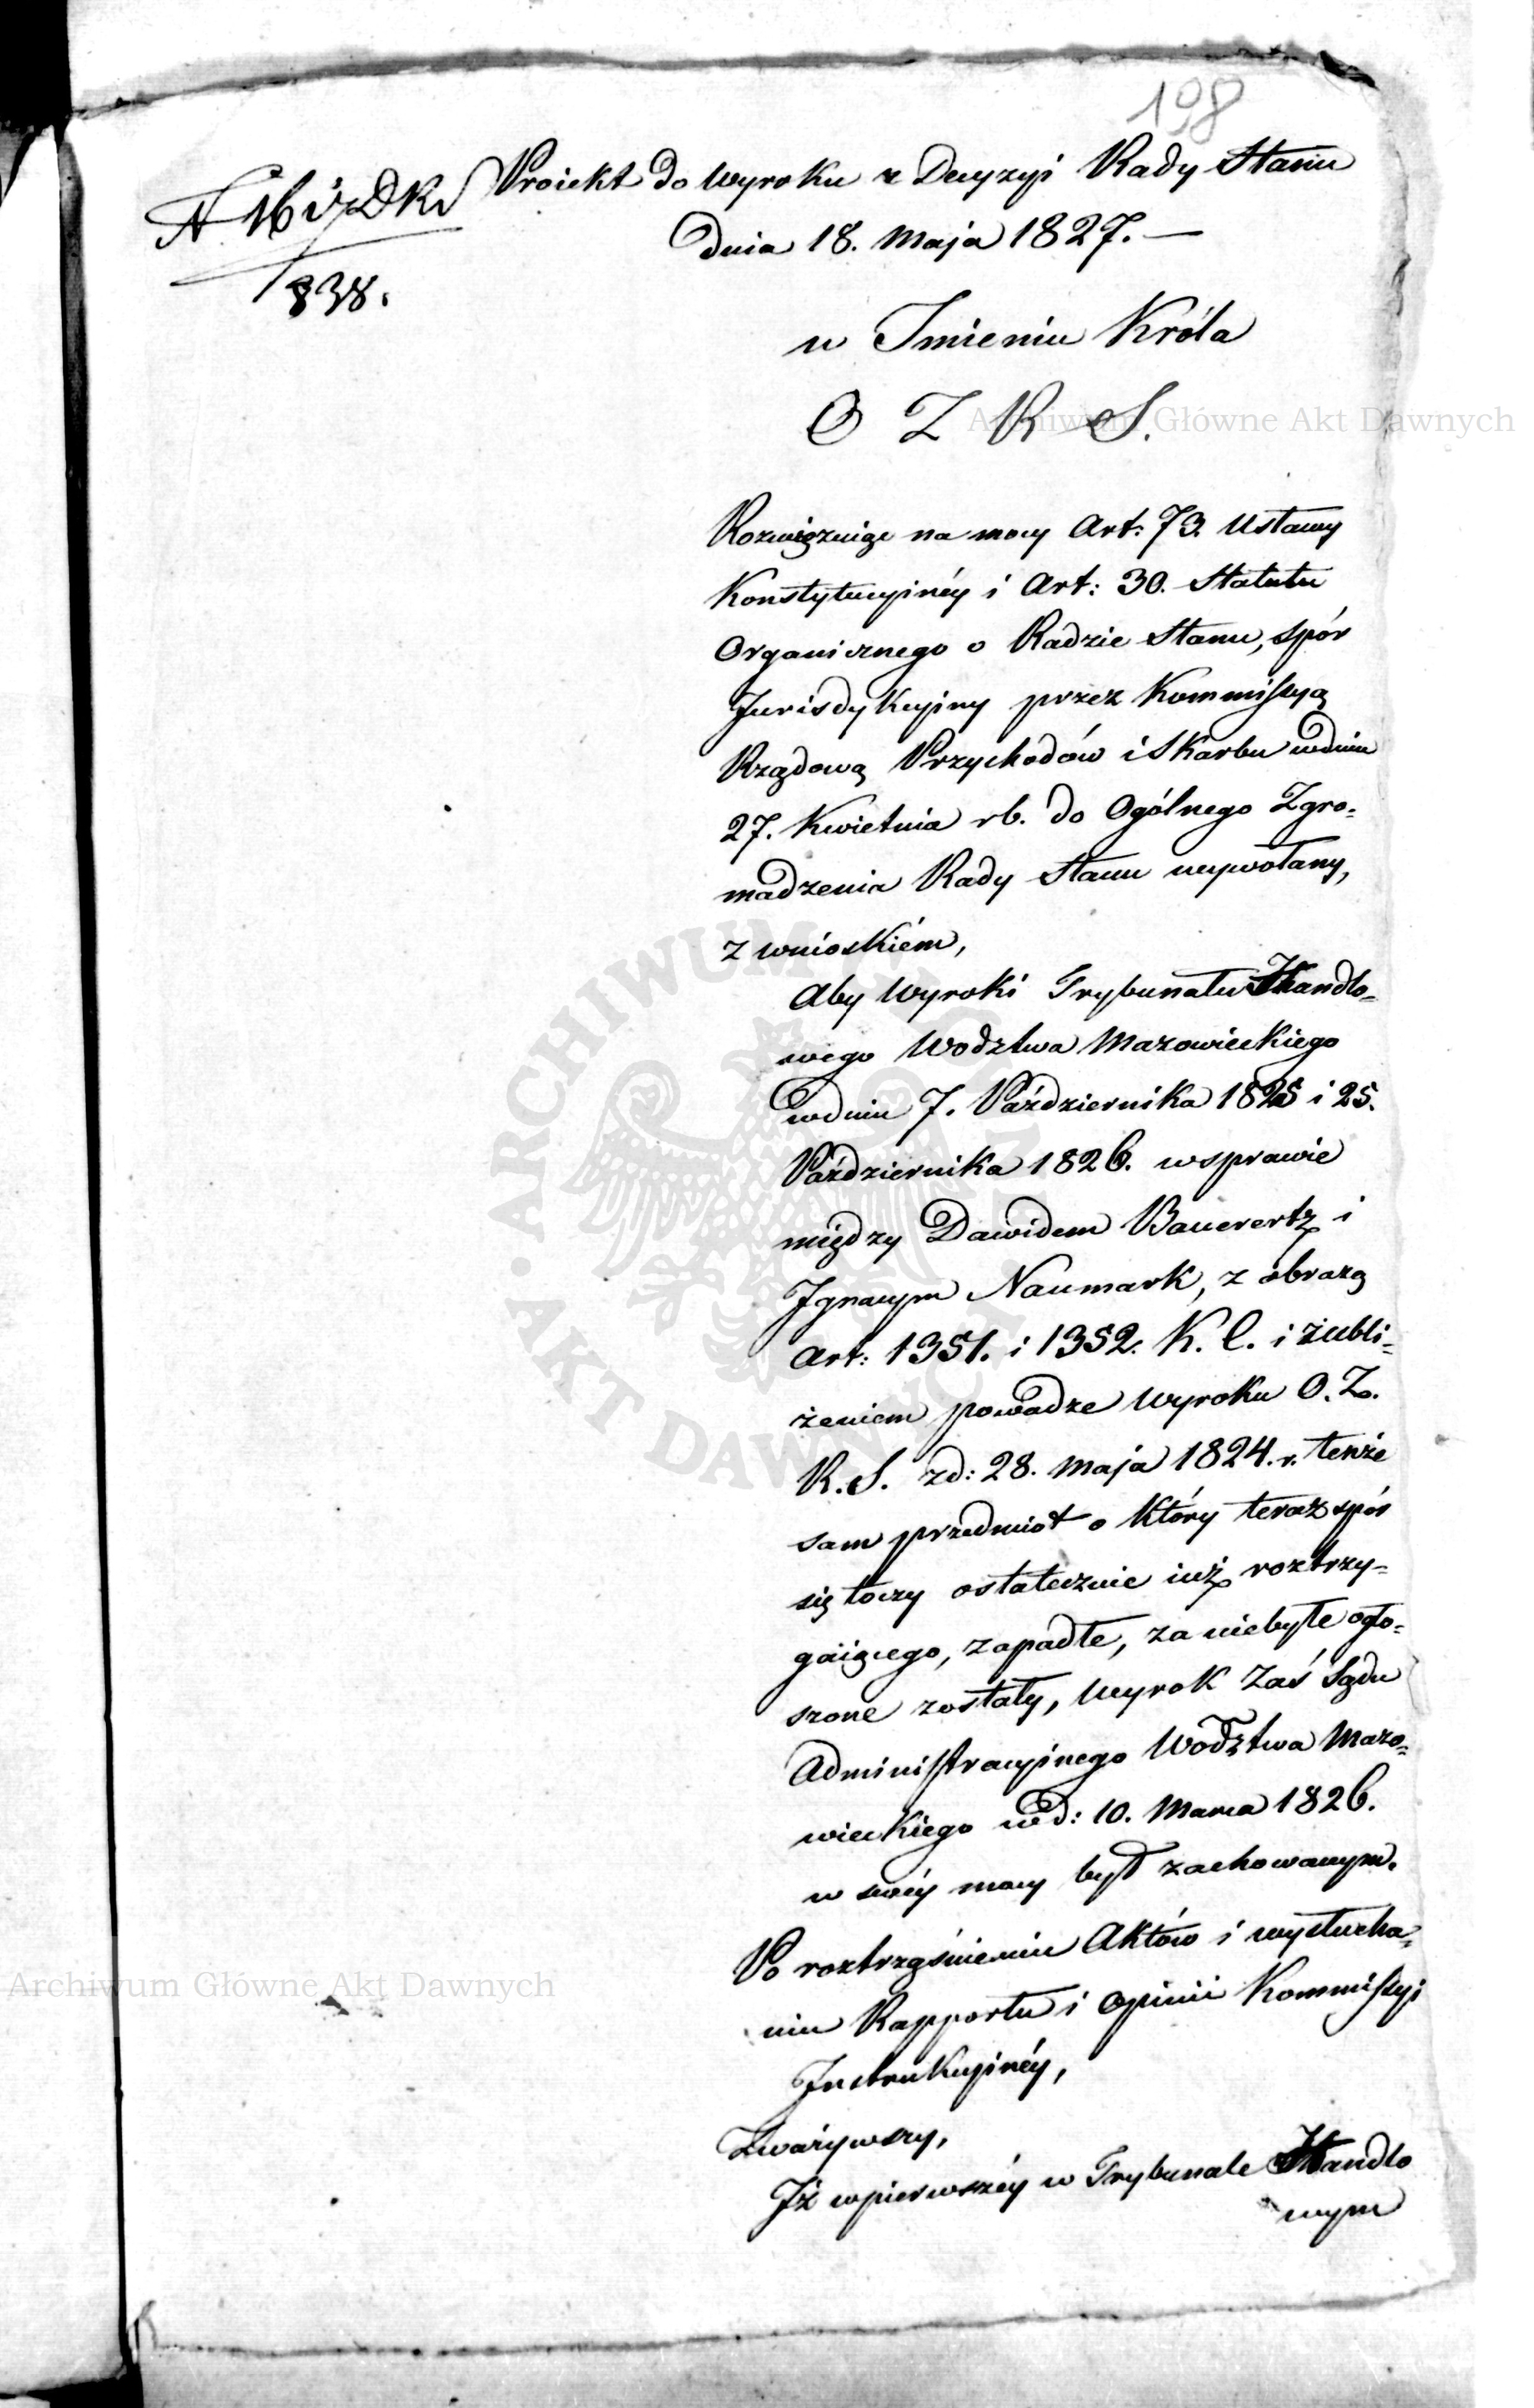 198
Proiekt do Wyroku z Decyzyi Rady Stanu
dnia 18. Maja 1827. —
N 16
838.
w Imieniu Króla
O Z R S.
Rozwiązuiąc na mocy Art: 73. Ustawy
Konstytucyinéy i Art: 30. Statutu
Organicznego o Radzie Stanu, spór
Jurisdykcyiny przez Kommissyą
Rządową Przychodów i Skarbu wdniu
27. Kwietnia rb. do Ogólnego Zgro=
madzenia Rady Stanu wywołany,
z wnioskiém,
Aby Wyroki Trybunału Handlo=
wego Wodztwa Mazowieckiego
wdniu 7. Października 1825 i 25.
Października 1826. w sprawie
między Dawidem Bauerertz i
Ignacym Naumark, z obrazą
Art: 1351. i 1352. K. C. i zubli=
żeniem powadze Wyroku O. Z.
R. S. zd: 28. Maja 1824. r. tenże
sam przedmiot o który teraz spór
się toczy ostatecznie iuż roztrzy=
gaiącego, zapadłe, za niebyłe ogło=
szone zostały, Wyrok zaś Sądu
Administracyinego Wodztwa Mazo=
wieckiego wd: 10. Marca 1826.
w swéy mocy był zachowanym.
Po roztrząśnieniu Aktów i wysłucha=
niu Rapportu i Opinii Kommissyi
Instrukcyinéy,
Zważywszy,
Iż wpierwszéy w Trybunale Handlo
wym
Archiwum Główne Akt Dawnych
Archiwum Główne Akt Dawnych